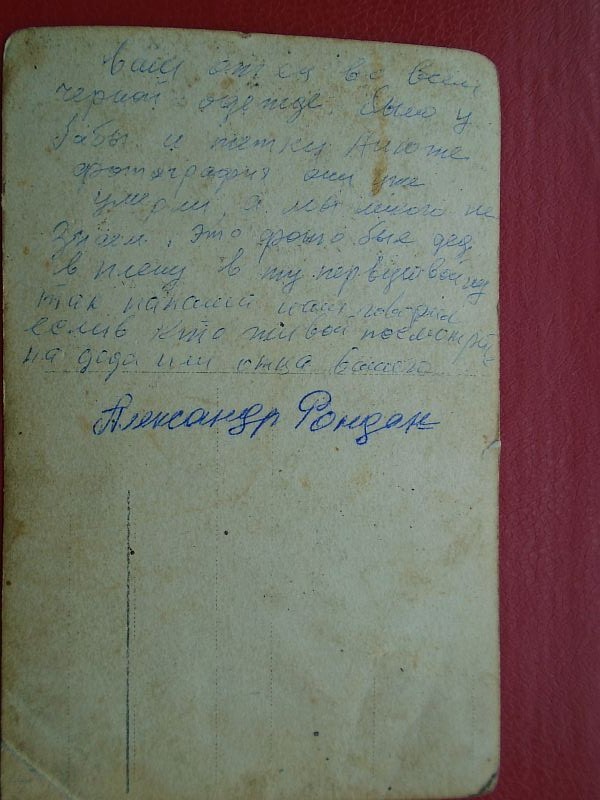 Ваш отец во всем
черной одежде. было у
бабы и тетки Анюты
фотография они уже
умерли, а мы много не
знаем, это фото был дед
в плену в ту первую войну
так папаши нам говорил
если в кто живой посмотрите
на деда или отца вашего
Александр Рондак